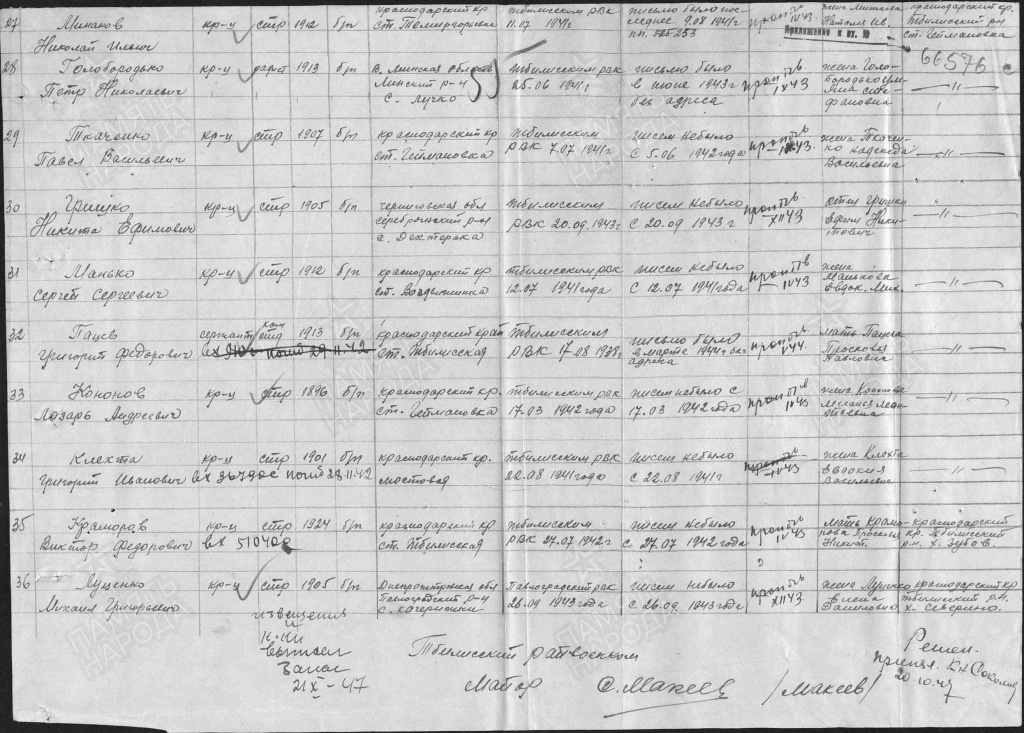 27 Минаков кр-ц стр 1912 б/п Краснодарский кр Тбилисским РВК письмо было пос- жена Минакова Краснодарский кр.
Николай Ильич ст. Темиргоевская 11.07 1941г леднее 9.08 1941г IV 43 Наталия Ив. Тбилисский р-н
пп. 525253 Приложение к вх. № ст. Геймановка
66576с
28 Голобородько кр-ц радист 1913 б/п Минская область Тбилисским рвк письмо было жена Голо- —"—
Петр Николаевич Минский р-н 25.06 1941г в июне 1943г 43 бородько
с. Лучко без адреса фановна
29 Ткаченко кр-ц стр 1907 б/п краснодарский кр Тбилисским писем небыло жена Ткачен- —"—
Павел Васильевич ст. Геймановка РВК 7.07 1941г с 5.06 1942 года 43. ко Надежда
Васильевна
30 Грицко кр-ц стр 1905 б/п черниговская обл Тбилисским писем небыло отец Грицко —"—
Никита Ефимович серебрянский р-н РВК 20.09.1943г с 20.09 1943г XII 43 Ефим
с. Дехтерака
31 Манько кр-ц стр 1912 б/п краснодарский кр Тбилисским РВК писем небыло жена —"—
Сергей Сергеевич ст. Воздвиженка 12.07 1941 года с 12.07 1941 года IV 43 Манькова
Евдок. Мих.
32 Пацев сержант ком отд 1913 б/п краснодарский край Тбилисским письмо было мать Пацева —"—
Григорий Федорович погиб 29.11.42 ст. Тбилисская РВК 17.08 1938г. в марте 1944г без IV 44. Просковя
адреса Павловна
33 Кононов кр-ц стр 1896 б/п краснодарский кр. Тбилисским рвк писем небыло с жена Кононова —"—
Лазарь Андреевич ст. Геймановка 17.03 1942 года 17.03 1942 года IV 43 Мелания
34 Клехта кр-ц стр 1901 б/п краснодарский кр. Тбилисским рвк писем небыло жена Клехта —"—
Григорий Иванович вх 36790с погиб 28.11.42 мостовая 22.08 1941 года с 22.08 1941г IV 43 Евдокия
Васильевна
35 Краморов кр-ц стр 1924 б/п краснодарский кр Тбилисским писем небыло мать Крамо- краснодарский
Виктор Федорович вх 51040с ст. Тбилисская РВК 27.07 1942г с 27.07 1942 года IV 43 рова Просковя кр. Тбилисский
Никит. р-н. х. Зубов.
36 Луценко кр-ц стр 1905 б/п Днепропетровская обл Павлоградский рвк писем небыло жена Луценко краснодарский кр
Михаил Григорьевич Павлоградский р-н 26.09 1943 года с 26.09. 1943 года XII 43 Елена Тбилисский р.н.
с. Кочережки Даниловна х- Северино.
извещения
Тбилисский райвоенком
Майор С. Макеев /Макеев/
21 X - 47
20.10.47